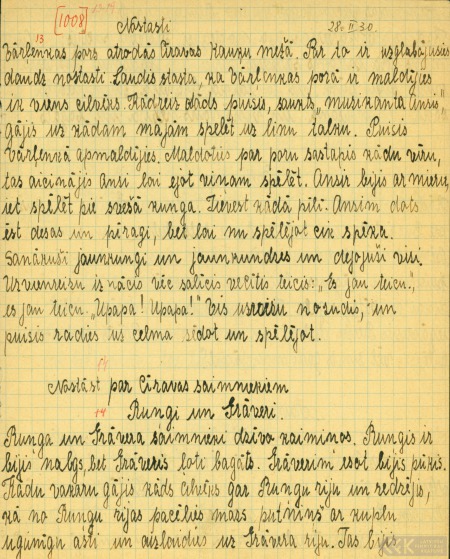 [1008]
Nostasti
28. II 30.
13
Vārlenkas pors atrodās Cīravas Kauķu mežā. Par to ir uzglabājušies
daudz nostasti. Laudis stasta, ka Vārlenkas porā ir maldījies
ik viens cilvēks. Kādreiz kāds puisis, saukts „musikanta Ansis",
gājis uz kādam mājām spelēt uz linu talku. Puisis
Vārlenkā apmaldījies. Maldoties par poru sastapis kādu vīru,
tas aicinājis Ansi lai ejot vinam spēlēt. Ansir bijis ar mieru
iet spēlēt pie svešā kunga. Ievest kādā pilī. Ansim dots
ēst desas un pīragi, bet lai nu spēlējot cik spēka.
Sanākuši jaunkungi un jaunkundzes un dejojuši visi.
Uzvienreizu is nācis vēc salīcis vecītis teicis: „Es jau teicu,
es jau teicu. „Upapa! Upapa!" Vis uzreizu nozudis, un
puisis radies uz celma sēdot un spēlējot.
14
Nostāst par Cīravas saimniekiem
14 Rungi un Grāveri.
Runga un Grāvera saimnieki dzīvo kaiminos. Rungis ir
bijis nabgs, bet Grāveris ļoti bagāts. Grāverim esot bijis pūķis.
Kādu vakaru gājis kāds cilvēks gar Rungu riju un redzējis,
kā no Rungu rijas pacēlies mazs putnins ar kuplu
ugunīgu asti un aizlaudies uz Grāvera riju. Tas bijis